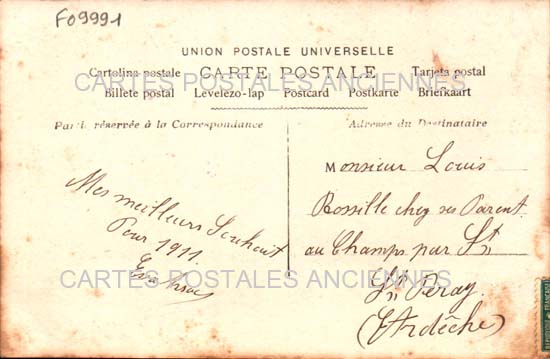 F09991
UNION POSTALE UNIVERSELLE
Cartolina postale CARTE POSTALE Tarjeta postal
CARTES POSTALES ANCIENNES
Billete postal Levelezo-lap Postcard Postkarte Briefkaart
Partie réservée à la Correspondance
Adresse du Destinataire
Mes meilleurs Souhait
Pour 1911.
Eva
Monsieur Louis
Rossille chez ses Parent
au Champs par St
St Peray.
(Ardêche)
CARTES POSTALES ANCIENNES